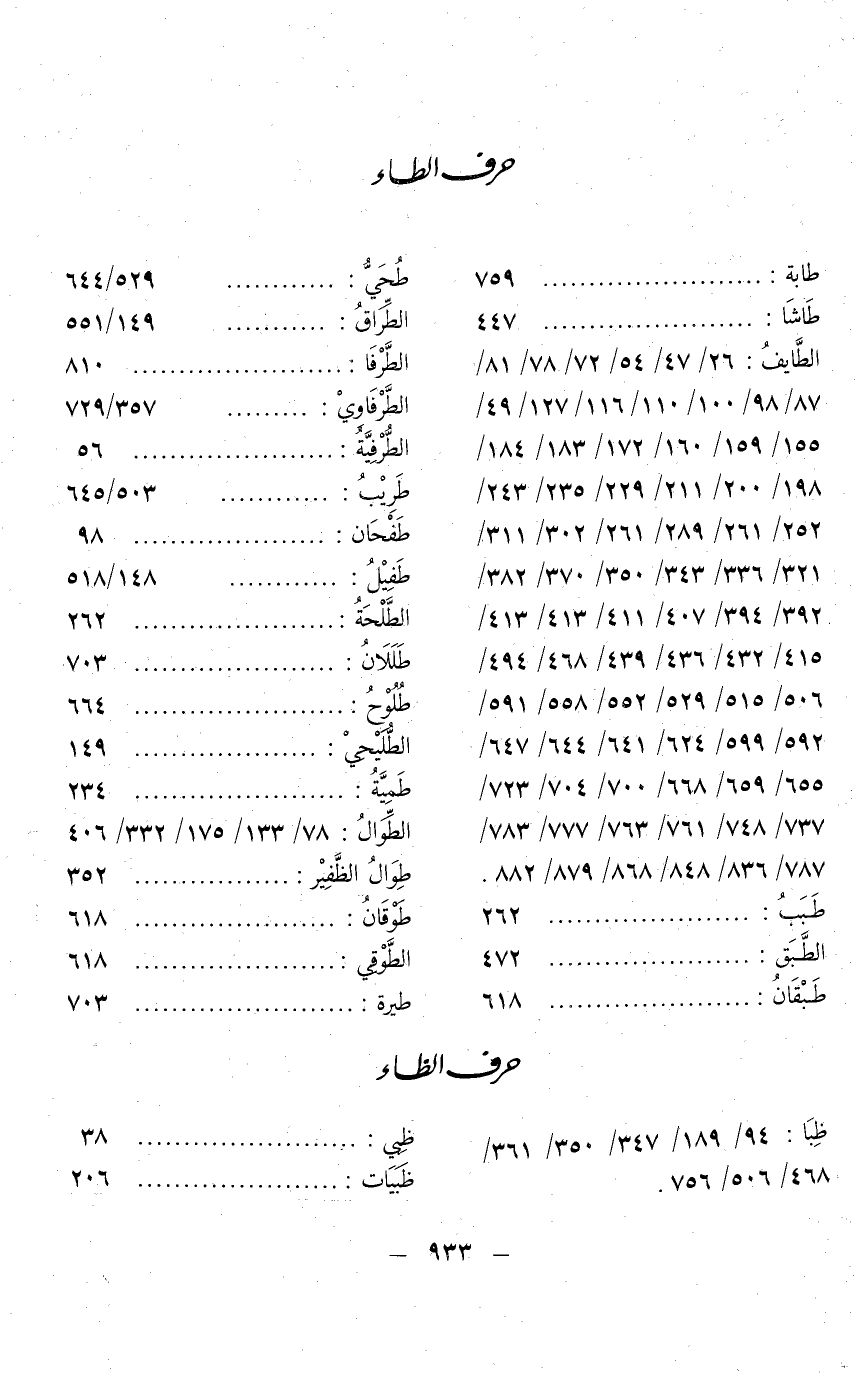 حرف الطاء
طابة : ........................ ٧٥٩
طَاشَا : ....................... ٤٤٧
الطَّايفُ : ٢٦/ ٤٧/ ٥٤/ ٧٢/ ٧٨/ ٨١/
٨٧/ ٩٨/ ١٠٠/ ١١٠/ ١١٦/ ١٢٧/ ٤٩/
١٥٥/ ١٥٩/ ١٦٠/ ١٧٢/ ١٨٣/ ١٨٤/
١٩٨/ ٢٠٠/ ٢١١/ ٢٢٩/ ٢٣٥/ ٢٤٣/
٢٥٢/ ٢٦١/ ٢٨٩/ ٢٦١/ ٣٠٢/ ٣١١/
٣٢١/ ٣٣٦/ ٣٤٣/ ٣٥٠/ ٣٧٠/ ٣٨٢/
٣٩٢/ ٣٩٤/ ٤٠٧/ ٤١١/ ٤١٣/ ٤١٣/
٤١٥/ ٤٣٢/ ٤٣٦/ ٤٣٩/ ٤٦٨/ ٤٩٤/
٥٠٦/ ٥١٥/ ٥٢٩/ ٥٥٢/ ٥٥٨/ ٥٩١/
٥٩٢/ ٥٩٩/ ٦٢٤/ ٦٤١/ ٦٤٤/ ٦٤٧/
٦٥٥/ ٦٥٩/ ٦٦٨/ ٧٠٠/ ٧٠٤/ ٧٢٣/
٧٣٧/ ٧٤٨/ ٧٦١/ ٧٦٣/ ٧٧٧/ ٧٨٣/
٧٨٧/ ٨٣٦/ ٨٤٨/ ٨٦٨/ ٨٧٩/ ٨٨٢ .
طَبَبُ : ...................... ٢٦٢
الطَّبَق : ...................... ٤٧٢
طَبْقَانُ : ...................... ٦١٨
طُحَيُّ : ............ ٥٢٩/٦٤٤
الطِّرَاقُ : ........... ١٤٩/٥٥١
الطَّرْفَا : ....................... ٨١٠
الطَّرْفَاوِيْ : ......... ٣٥٧/٧٢٩
الطُّرْفِيَّةُ : ...................... ٥٦
طَرِيْبُ : ............ ٥٠٣/٦٤٥
طَفْحَان : ..................... ٩٨
طَفِيْلُ : ............ ١٤٨/٥١٨
الطَّلْحَةُ : ...................... ٢٦٢
طَلَلَانُ : ...................... ٧٠٣
طُلُوْحُ : ....................... ٦٦٤
الطُّلَيْحِيْ : .................... ١٤٩
طَمِيَّةُ : ....................... ٢٣٤
الطِّوَالُ : ٧٨/ ١٣٣/ ١٧٥/ ٣٣٢/ ٤٠٦
طِوَالُ الظَّفِيْر : ................. ٣٥٢
طَوْقَانُ : ...................... ٦١٨
الطَّوْقِي : ...................... ٦١٨
طيرة : ........................ ٧٠٣
حرف الظاء
ظِبَا : ٩٤/ ١٨٩/ ٣٤٧/ ٣٥٠/ ٣٦١/
٤٦٨/ ٥٠٦/ ٧٥٦ .
ظِبِي : ........................ ٣٨
ظَبَيَات : ...................... ٢٠٦
— ٩٣٣ —